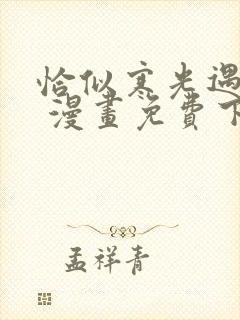 恰似寒光遇
漫畫免費下
孟祥青